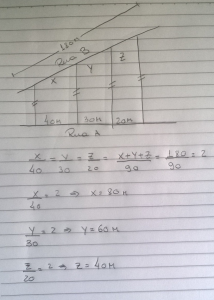 180m
Rua B
x
y
z
40m 30m 20m
Rua A
x/40 = y/30 = z/20 = x+y+z/90 = 180/90 = 2
x/40 = 2 ⇒ x = 80m
y/30 = 2 ⇒ y = 60m
z/20 = 2 ⇒ z = 40m